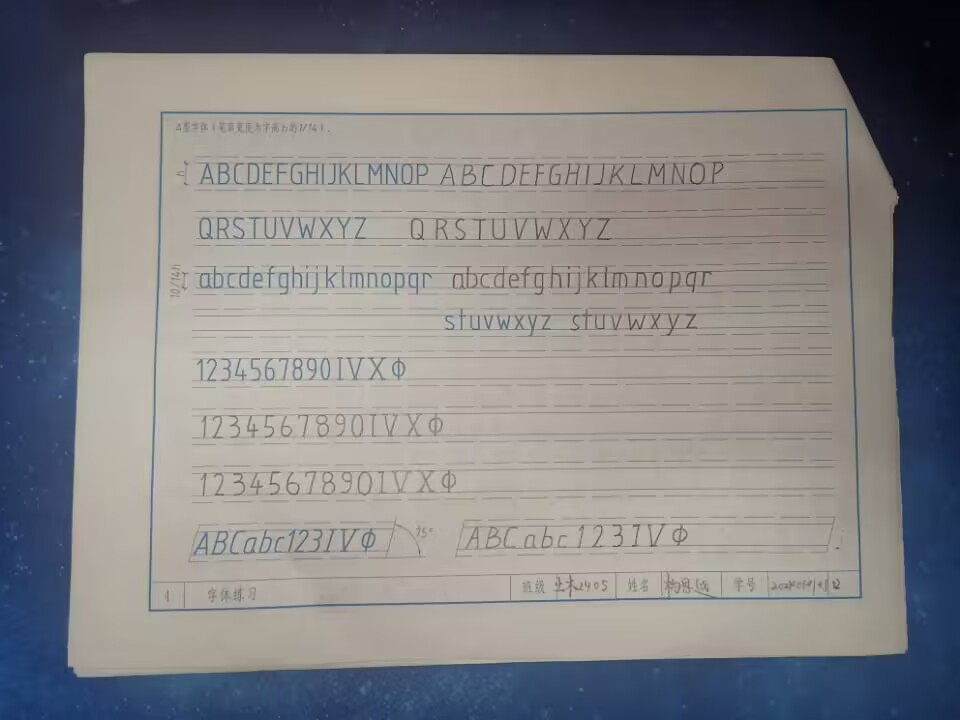 A型字体(笔画宽度为字高h的1/14)。
h ABCDEFGHIJKLMNOP ABCDEFGHIJKLMNOP
QRSTUVWXYZ QRSTUVWXYZ
10/14h abcdefghijklmnopqr abcdefghijklmnopqr
stuvwxyz stuvwxyz
1234567890IVXΦ
1234567890IVXΦ
1234567890IVXΦ
ABCabc123IVΦ 75° ABCabc123IVΦ
4 字体练习 班级 土木2405 姓名 学号